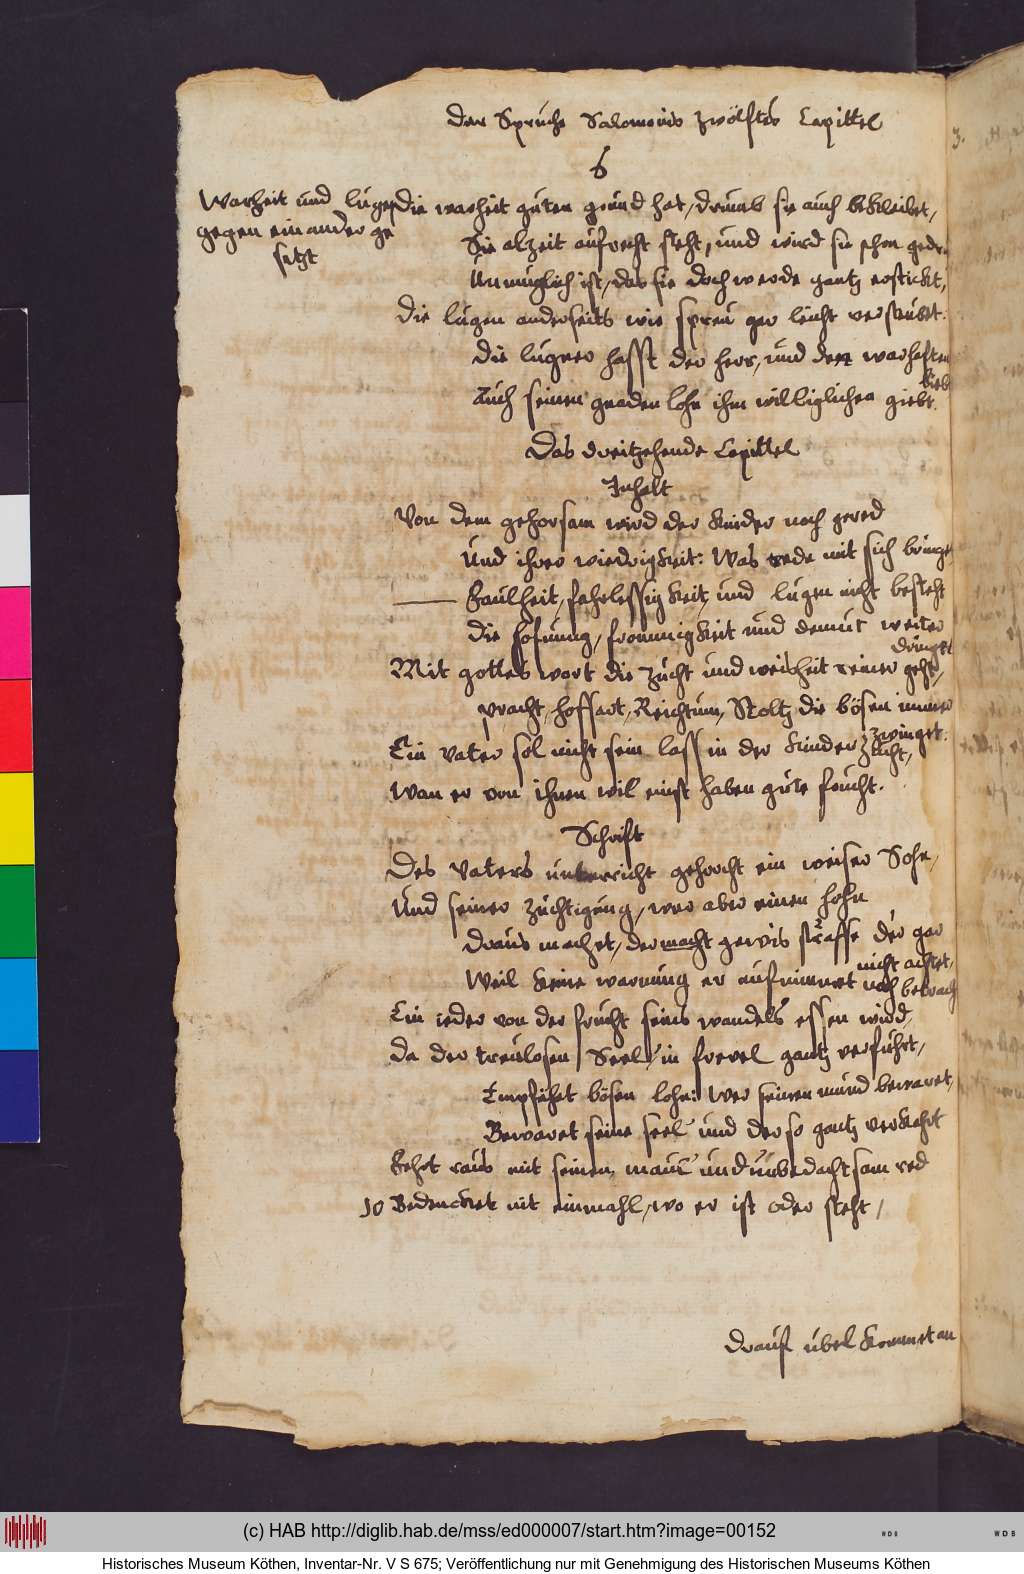 Der Spruche Salomonis Zwölftes Capittel
6
Warheit und lugen
gegen einander ge
setzt
die warheit guten grund hat, drumb sie auch bekleibet,
Sie alzeit aufrecht steht, und wird sie schon gedr
Unmuglich ist, das sie doch werde gantz erstickt,
Die lugen anderseits wie spreu gar leicht verstubet.
Die lugner hasst der herr, und den warhaften
liebt
Auch seinen gnaden lohn ihm williglichen giebt.
Das dreitzehende Capittel
Inhalt
Von dem gehorsam wird der Kinder noch gered
Und ihrer wiedrigkeit: Was rede mit sich bringet
Faulheit, fahrlessigkeit, und lugen nicht besteht
Die hofnung, frommigkeit und demut weiter
dringet
Mit gottes wort die zucht und weisheit reiner geht,
pracht, hoffart, Reichtum, Stoltz die bösen immer
zwinget.
Ein vater sol nicht sein lass in der Kinder zucht,
Wan er von ihnen wil einst haben gute frucht.
Schrift
Des Vaters unterricht gehorcht ein weiser Sohn,
Und seiner zuchtigung, wer aber einen hohn
Draus machet, der macht gewis straffe der gar
nicht achtet,
Weil keine warnung er aufnimmet noch betracht
Ein ieder von der frucht seins wandels essen wird,
da der treulosen Seel, in frevel gantz verfuhrt,
Empfehet bösen lohn: Wer seinen mund bewaret,
Bewaret seine seel und der so gantz verkehrt
Fehrt raus mit seinem maul und unbedachtsam red
10 Bedencket nit einmahl, wo er ist oder steht,
Drauf ubel kommet an
(c) HAB http://diglib.hab.de/mss/ed000007/start.htm?image=00152
Historisches Museum Köthen, Inventar-Nr. V S 675; Veröffentlichung nur mit Genehmigung des Historischen Museums Köthen